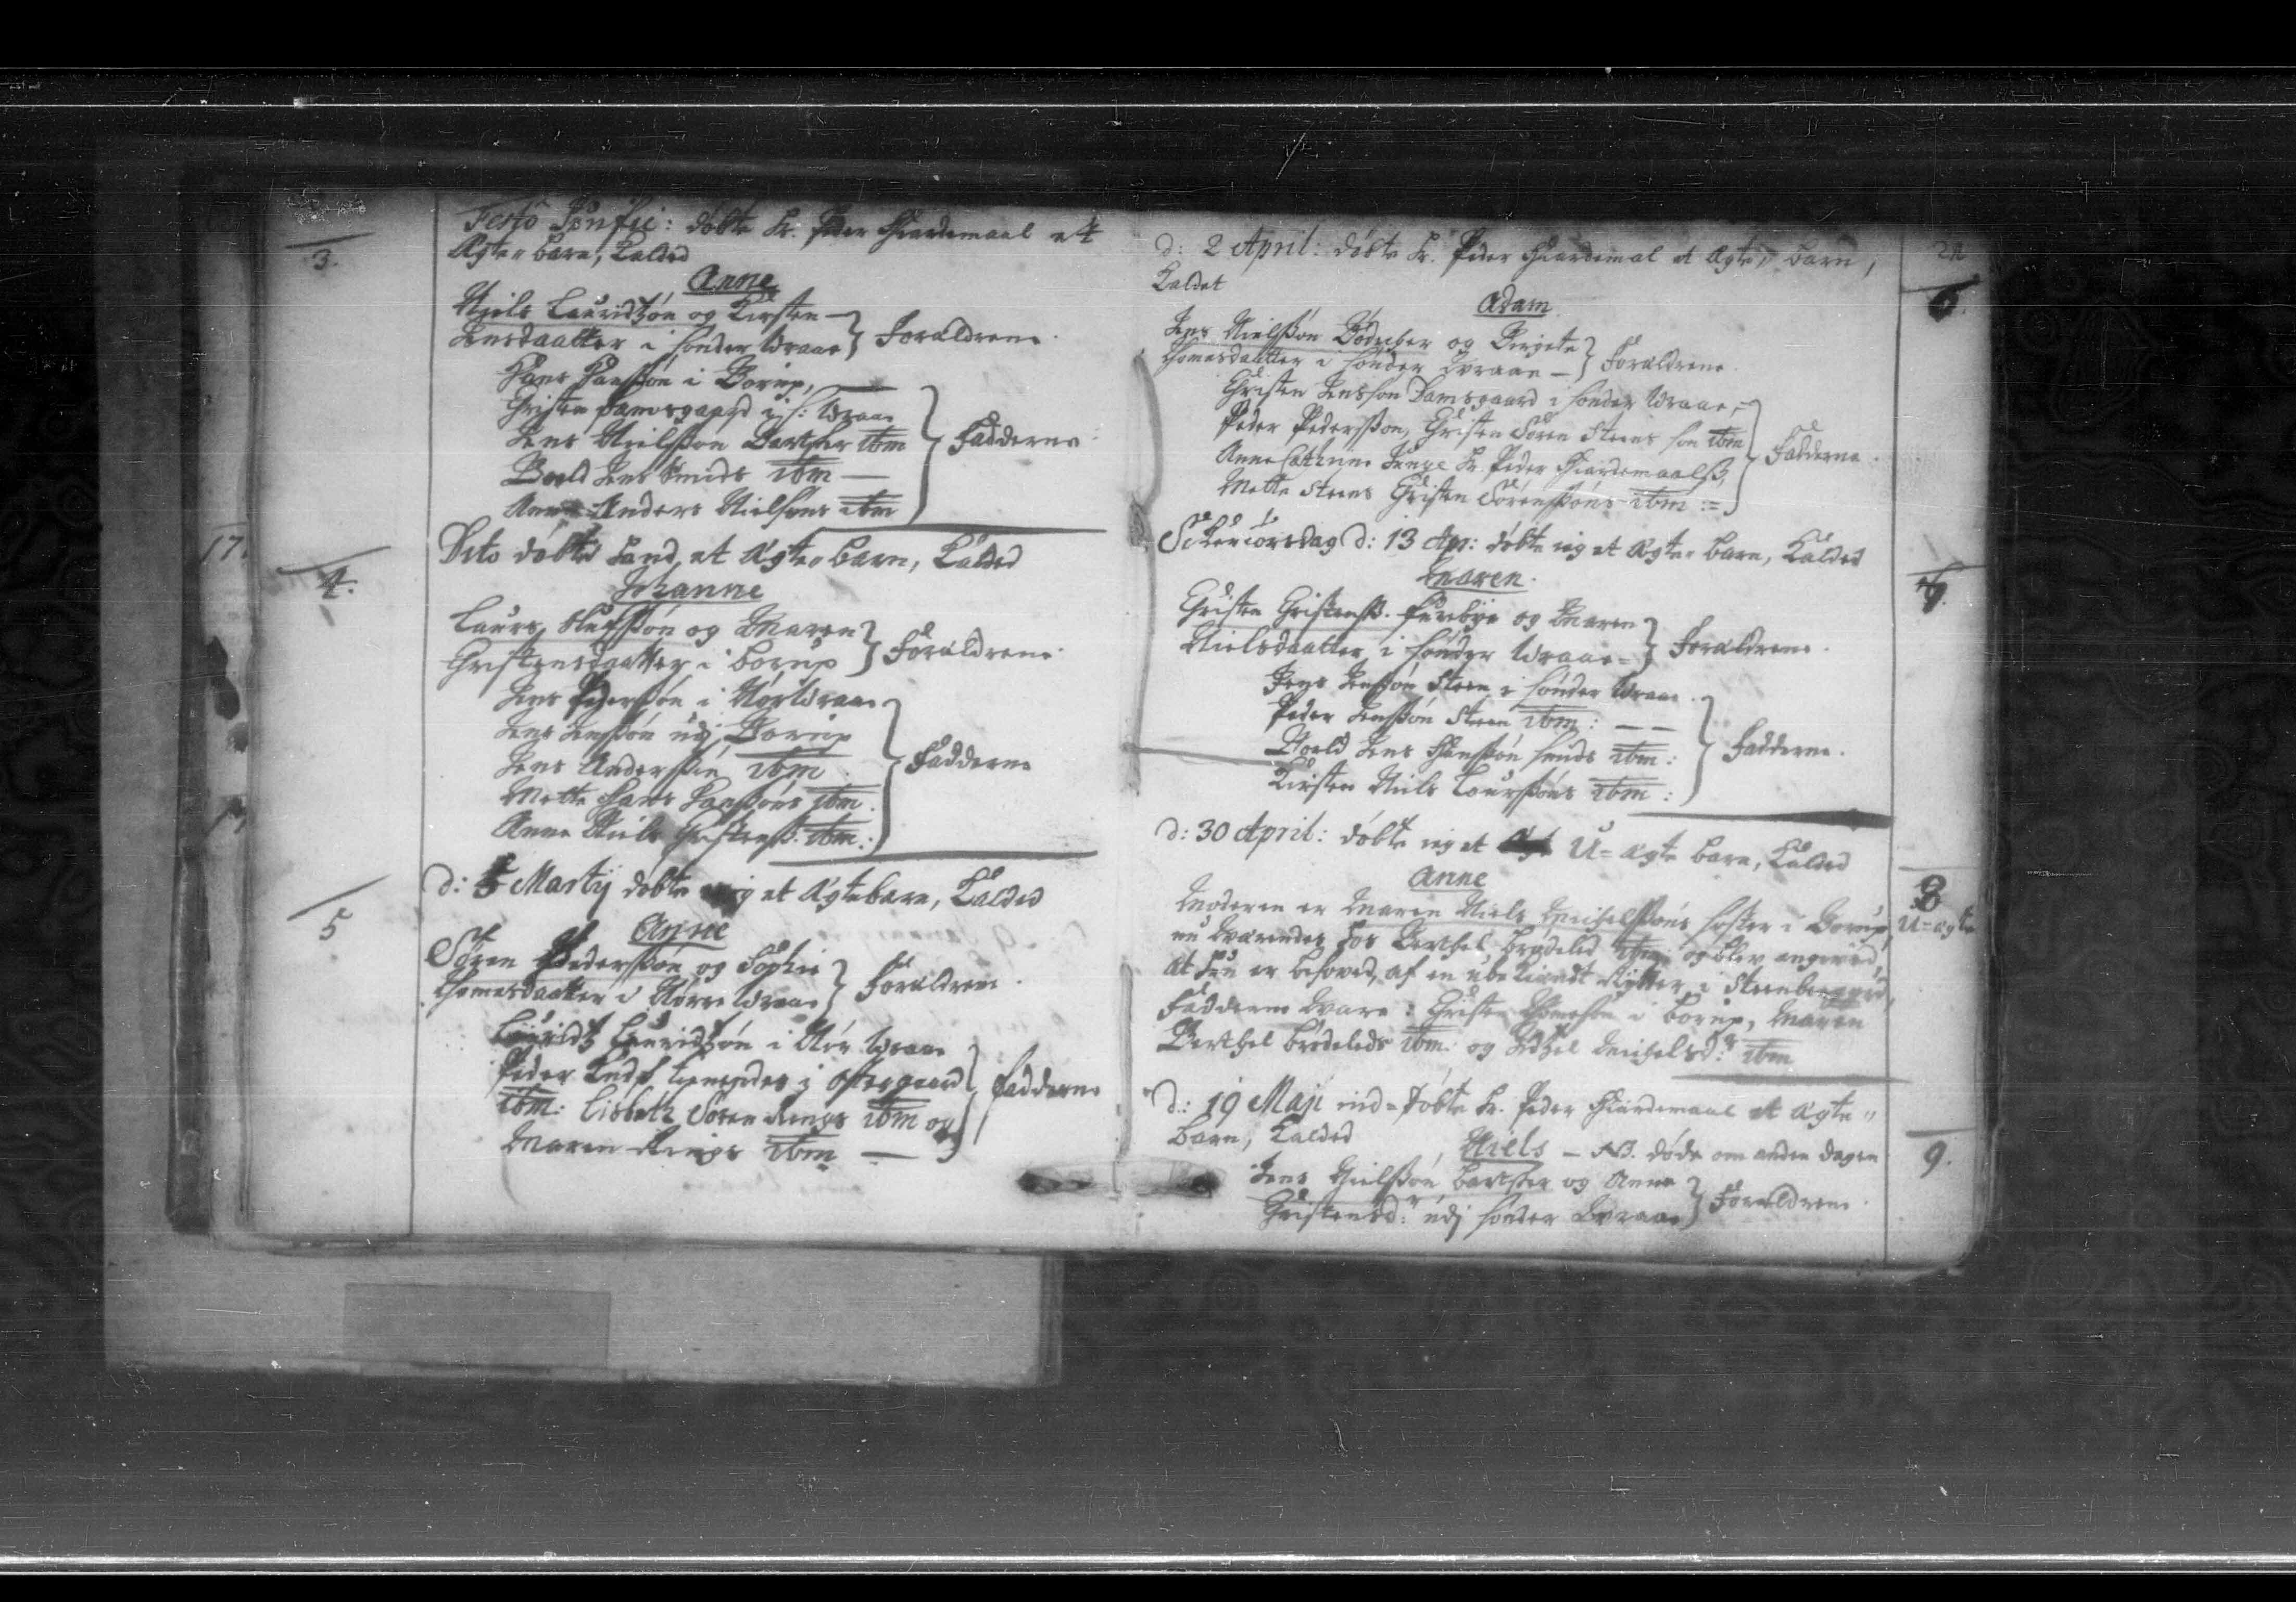 3.
Festo Purific: döbte Hr. Peder Hiardemaal et
Ægte barn, Kalded
Anne
Niels Lauridtzön og Kirsten
Jensdaatter i Sönder Wraae } Forældrene
Hans Hanssön i Borup,
Christen Damsgaard i S: Wraae
Jens Nielssön Berther ibm
Boeld Jens Smids ibm
Anne Anders Nielsöns ibm } Fadderne
4.
Dito döbte hand et Ægte barn, Kaldet
Johanne
Laurs Olufssön og Maren
Christensdaatter i Borup } Forældrene
Jens Pederssön i Nör Wraae
Jens Jenssön udj Borup
Jens Anderssön ibm
Mette Hans Hanssöns ibm.
Anne Niels Christenss. ibm: } Fadderne
5
d: 5 Martij döbte ieg et Ægte barn, Kaldet
Anne
Sören Pederssön og Sophie
Thomasdaatter i Nörre Wraae } Forældrene.
Lauridtz Lauridtzön i Nör Wraae
Peder tienendes i Ostergaard
ibm: Lisbeth Sören Rings ibm og
Maren Rings ibm } Fadderne
d: 2 April: döbte Hr. Peder Hiardemal et Ægte barn,
Kaldet
6.
Adam
Jens Nielssön Bödicher og Birgete
Thomasdaatter i Sönder Wraae } Forældrene.
Christen Jensson Damsgaard i Sönder Wraae,
Peder Pedersson, Christen Sören Steens Sön ibm
Anne Cathrine Hr. Peder Hiardemaalss,
Mette Steens Christen Sörenssöns ibm := } Fadderne.
Skiertorsdag d: 13 Apr: döbte ieg et Ægte barn, Kaldet
7.
Maren.
Christen Christenss. og Maren
Nielsdaatter i Sönder Wraae } Forældrene.
Jens Jenssön Steen i Sönder Wraae.
Peder Jenssön Steen ibm:
Boeld Jens Hanssön Smids ibm:
Kirsten Niels Laurssöns ibm: } Fadderne.
d: 30 April: döbte ieg et U=ægte barn, Kaldet
8
U=ægte
Anne
Moderen er Maren Niels Michelssöns Söster i Borup,
nu værendes hos Berthel Brödeled ibm og blev angivet,
at hun er besovet, af en ubekiendt Rytter, i
Fadderne ware: Christen Thomesön i Borup, Maren
Berthel Brödeleds ibm: og Michelsdr: ibm
d: 19 Maji ind=döbte Hr. Peder Hiardemaal et Ægte
barn, Kaldet
9.
Niels – NB. döde om anden dagen
Jens Nielssön Berther og Anne
Christensdr: udj Sönder Wraae } Forældrene.